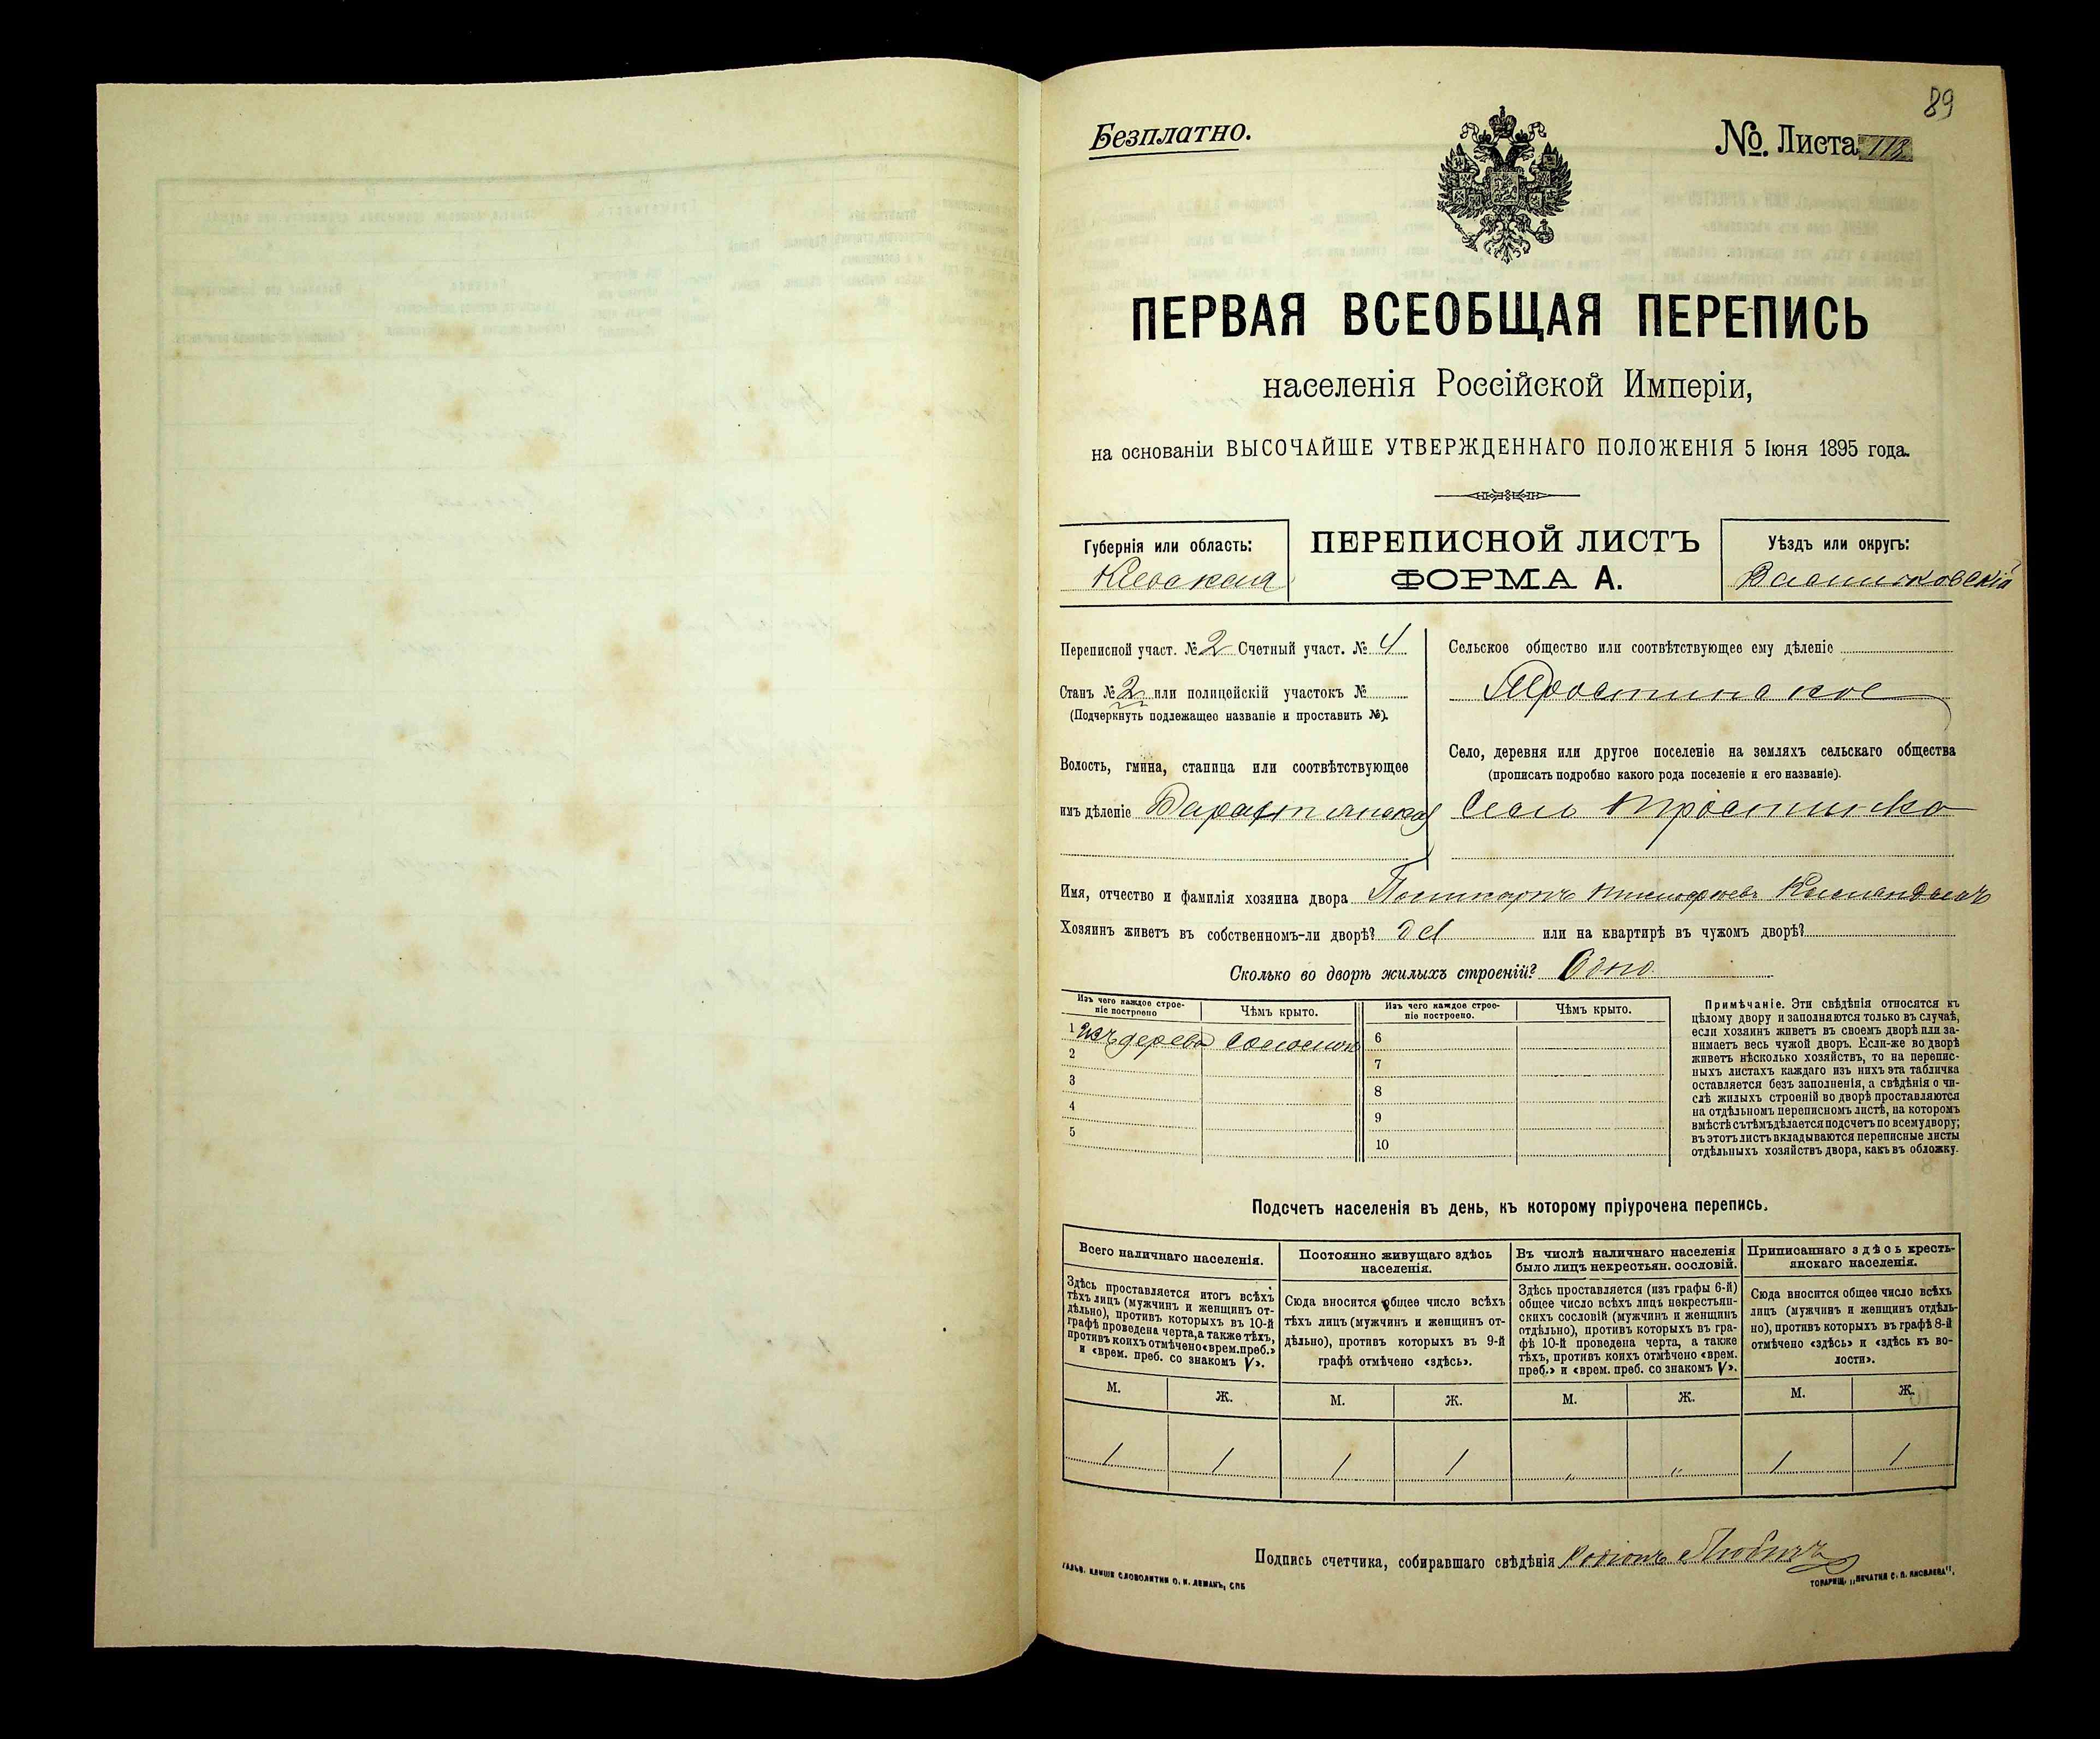 89
Безплатно.
№. Листа 113
ПЕРВАЯ ВСЕОБЩАЯ ПЕРЕПИСЬ
населенія Россійской Имперіи,
на основаніи ВЫСОЧАЙШЕ УТВЕРЖДЕННАГО ПОЛОЖЕНІЯ 5 Іюня 1895 года.
Губернія или область:
Кіевская
ПЕРЕПИСНОЙ ЛИСТЪ
ФОРМА А.
Уѣздъ или округъ:
Васильковскій
Переписной участ. № 2 Счетный участ. № 4
Станъ № 2 или полицейскій участокъ №
(Подчеркнуть подлежащее названіе и проставить №).
Волость, гмина, станица или соотвѣтствующее
имъ дѣленіе
Сельское общество или соотвѣтствующее ему дѣленіе
Тростинское
Село, деревня или другое поселеніе на земляхъ сельскаго общества
(прописать подробно какого рода поселеніе и его названіе).
Село Тростинка
Имя, отчество и фамилія хозяина двора Поликарпъ
Хозяинъ живетъ въ собственномъ-ли дворѣ? да или на квартирѣ въ чужомъ дворѣ?
Сколько во дворѣ жилыхъ строеній? Одно
Изъ чего каждое строе-
ніе построено
Чѣмъ крыто.
Изъ чего каждое строе-
ніе построено.
Чѣмъ крыто.
1 изъ дерева соломою
2
3
4
5
6
7
8
9
10
Примѣчаніе. Эти свѣдѣнія относятся къ
цѣлому двору и заполняются только въ случаѣ,
если хозяинъ живетъ въ своемъ дворѣ или за-
нимаетъ весь чужой дворъ. Если-же во дворѣ
живетъ нѣсколько хозяйствъ, то на перепис-
ныхъ листахъ каждаго изъ нихъ эта табличка
оставляется безъ заполненія, а свѣдѣнія о чи-
слѣ жилыхъ строеній во дворѣ проставляются
на отдѣльномъ переписномъ листѣ, на которомъ
вмѣстѣ съ тѣмъ дѣлается подсчетъ по всему двору;
въ этотъ листъ вкладываются переписные листы
отдѣльныхъ хозяйствъ двора, какъ въ обложку.
Подсчетъ населенія въ день, къ которому пріурочена перепись.
Всего наличнаго населенія.
Здѣсь проставляется итогъ всѣхъ
тѣхъ лицъ (мужчинъ и женщинъ от-
дѣльно), противъ которыхъ въ 10-й
графѣ проведена черта, а также тѣхъ,
противъ коихъ отмѣчено «врем. преб.»
и «врем. преб. со знакомъ V».
Постоянно живущаго здѣсь
населенія.
Сюда вносится общее число всѣхъ
тѣхъ лицъ (мужчинъ и женщинъ от-
дѣльно), противъ которыхъ въ 9-й
графѣ отмѣчено «здѣсь».
Въ числѣ наличнаго населенія
было лицъ некрестьян. сословій.
Здѣсь проставляется (изъ графы 6-й)
общее число всѣхъ лицъ некрестьян-
скихъ сословій (мужчинъ и женщинъ
отдѣльно), противъ которыхъ въ гра-
фѣ 10-й проведена черта, а также
тѣхъ, противъ коихъ отмѣчено «врем.
преб.» и «врем. преб. со знакомъ V».
Приписаннаго здѣсь кресть-
янскаго населенія.
Сюда вносится общее число всѣхъ
лицъ (мужчинъ и женщинъ отдѣль-
но), противъ которыхъ въ графѣ 8-й
отмѣчено «здѣсь» и «здѣсь къ во-
лости».
М. Ж. М. Ж. М. Ж. М. Ж.
1 1 1 1 „ „ 1 1
Подпись счетчика, собиравшаго свѣдѣнія Родіонъ
ГАЛЬВ. КЛИШЕ СЛОВОЛИТНИ О. И. ЛЕМАНЪ, СПБ
ТОВАРИЩ. „ПЕЧАТНЯ С. П. ЯКОВЛЕВА".